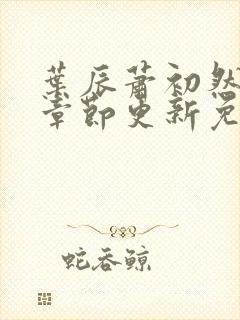 葉辰蕭初然
章節更新免
蛇吞鲸